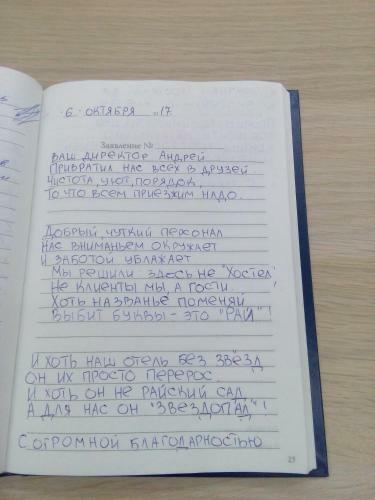 6 ОКТЯБРЯ 17
Заявление №
ВАШ ДИРЕКТОР АНДРЕЙ
ПРИВРАТИЛ НАС ВСЕХ В ДРУЗЕЙ
ЧИСТОТА, УЮТ, ПОРЯДОК,
ТО ЧТО ВСЕМ ПРИЕЗЖИМ НАДО.
ДОБРЫЙ, ЧУТКИЙ ПЕРСОНАЛ
НАС ВНИМАНЬЕМ ОКРУЖАЕТ
И ЗАБОТОЙ УБЛАЖАЕТ
МЫ РЕШИЛИ ЗДЕСЬ НЕ "ХОСТЕЛ"
НЕ КЛИЕНТЫ МЫ, А ГОСТИ. !
ХОТЬ НАЗВАНЬЕ ПОМЕНЯЙ
ВЫБИТ БУКВЫ - ЭТО "РАЙ"!
И ХОТЬ НАШ ОТЕЛЬ БЕЗ ЗВЁЗД
ОН ИХ ПРОСТО ПЕРЕРОС.
И ХОТЬ ОН НЕ РАЙСКИЙ САД,
А ДЛЯ НАС ОН "ЗВЕЗДОПАД"!
С ОГРОМНОЙ БЛАГОДАРНОСТЬЮ
25